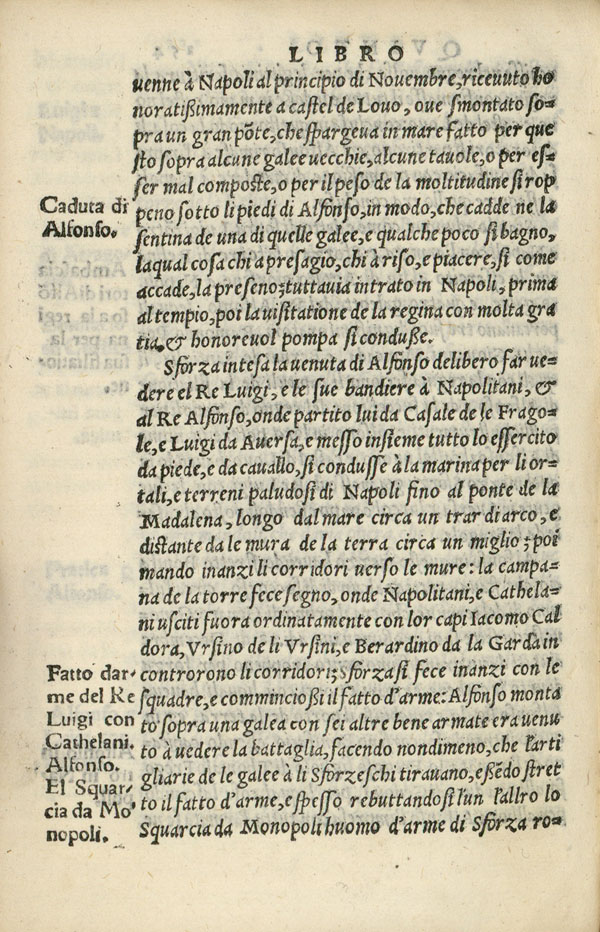 LIBRO
uenne à Napoli al principio di Nouembre, riceuuto ho
noratißimamente a castel de Louo, oue smontato so=
pra un gran põte, che spargeua in mare fatto per que
sto sopra alcune galee uecchie, alcune tauole, o per es=
ser mal composte, o per il peso de la moltitudine si rop
Caduta di
Alfonso.
peno sotto li piedi di Alfonso, in modo, che cadde ne la
sentina de una di quelle galee, e qualche poco si bagno,
laqual cosa chi a presagio, chi à riso, e piacere, si come
accade, la preseno; tuttauia intrato in Napoli, prima
al tempio, poi la uisitatione de la regina con molta gra
tia, & honoreuol pompa si conduße.
Sforza intesa la uenuta di Alfonso delibero far ue=
dere el Re Luigi, e le sue bandiere à Napolitani, &
al Re Alfonso, onde partito lui da Casale de le Frago=
le, e Luigi da Auersa, e messo insieme tutto lo essercito
da piede, e da cauallo, si condusse à la marina per li or=
tali, e terreni paludosi di Napoli fino al ponte de la
Madalena, longo dal mare circa un trar di arco, e
distante da le mura de la terra circa un miglio; poi
mando inanzi li corridori uerso le mure: la campa=
na de la torre fece segno, onde Napolitani, e Cathela=
ni usciti fuora ordinatamente con lor capi Iacomo Cal
dora, Vrsino de li Vrsini, e Berardino da la Garda in
Fatto dar-
me del Re
Luigi con
Cathelani.
Alfonso.
El Squar-
cia da Mo
nopoli.
controrono li corridori; Sforza si fece inanzi con le
squadre, e commincioßi il fatto d'arme: Alfonso monta
to sopra una galea con sei altre bene armate era uenu
to à uedere la battaglia, facendo nondimeno, che l'arti
gliarie de le galee à li Sforzeschi tirauano, essẽdo stret
to il fatto d'arme, e spesso rebuttandosi l'un l'altro lo
Squarcia da Monopoli huomo d'arme di Sforza ro=